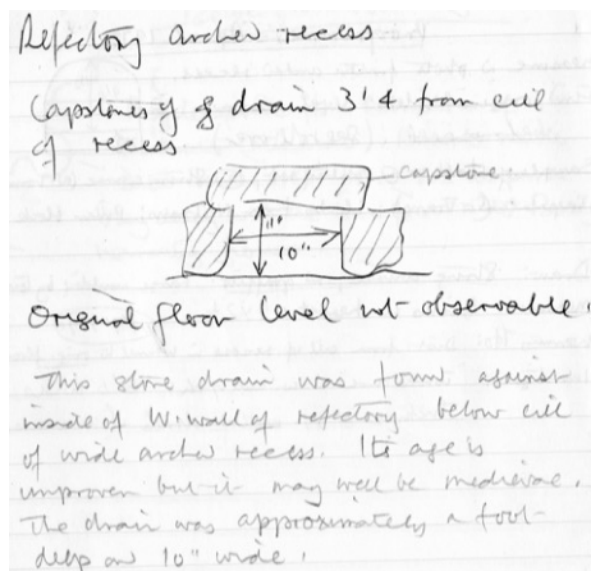 Refectory arched recess
Capstones of drain 3'4 from cill
of recess
capstone
11"
10"
Original floor level not observable.
This stone drain was found against
inside of W. wall of refectory below cill
of wide arched recess. Its age is
unproven but it may well be medieval.
The drain was approximately a foot
deep and 10" wide.